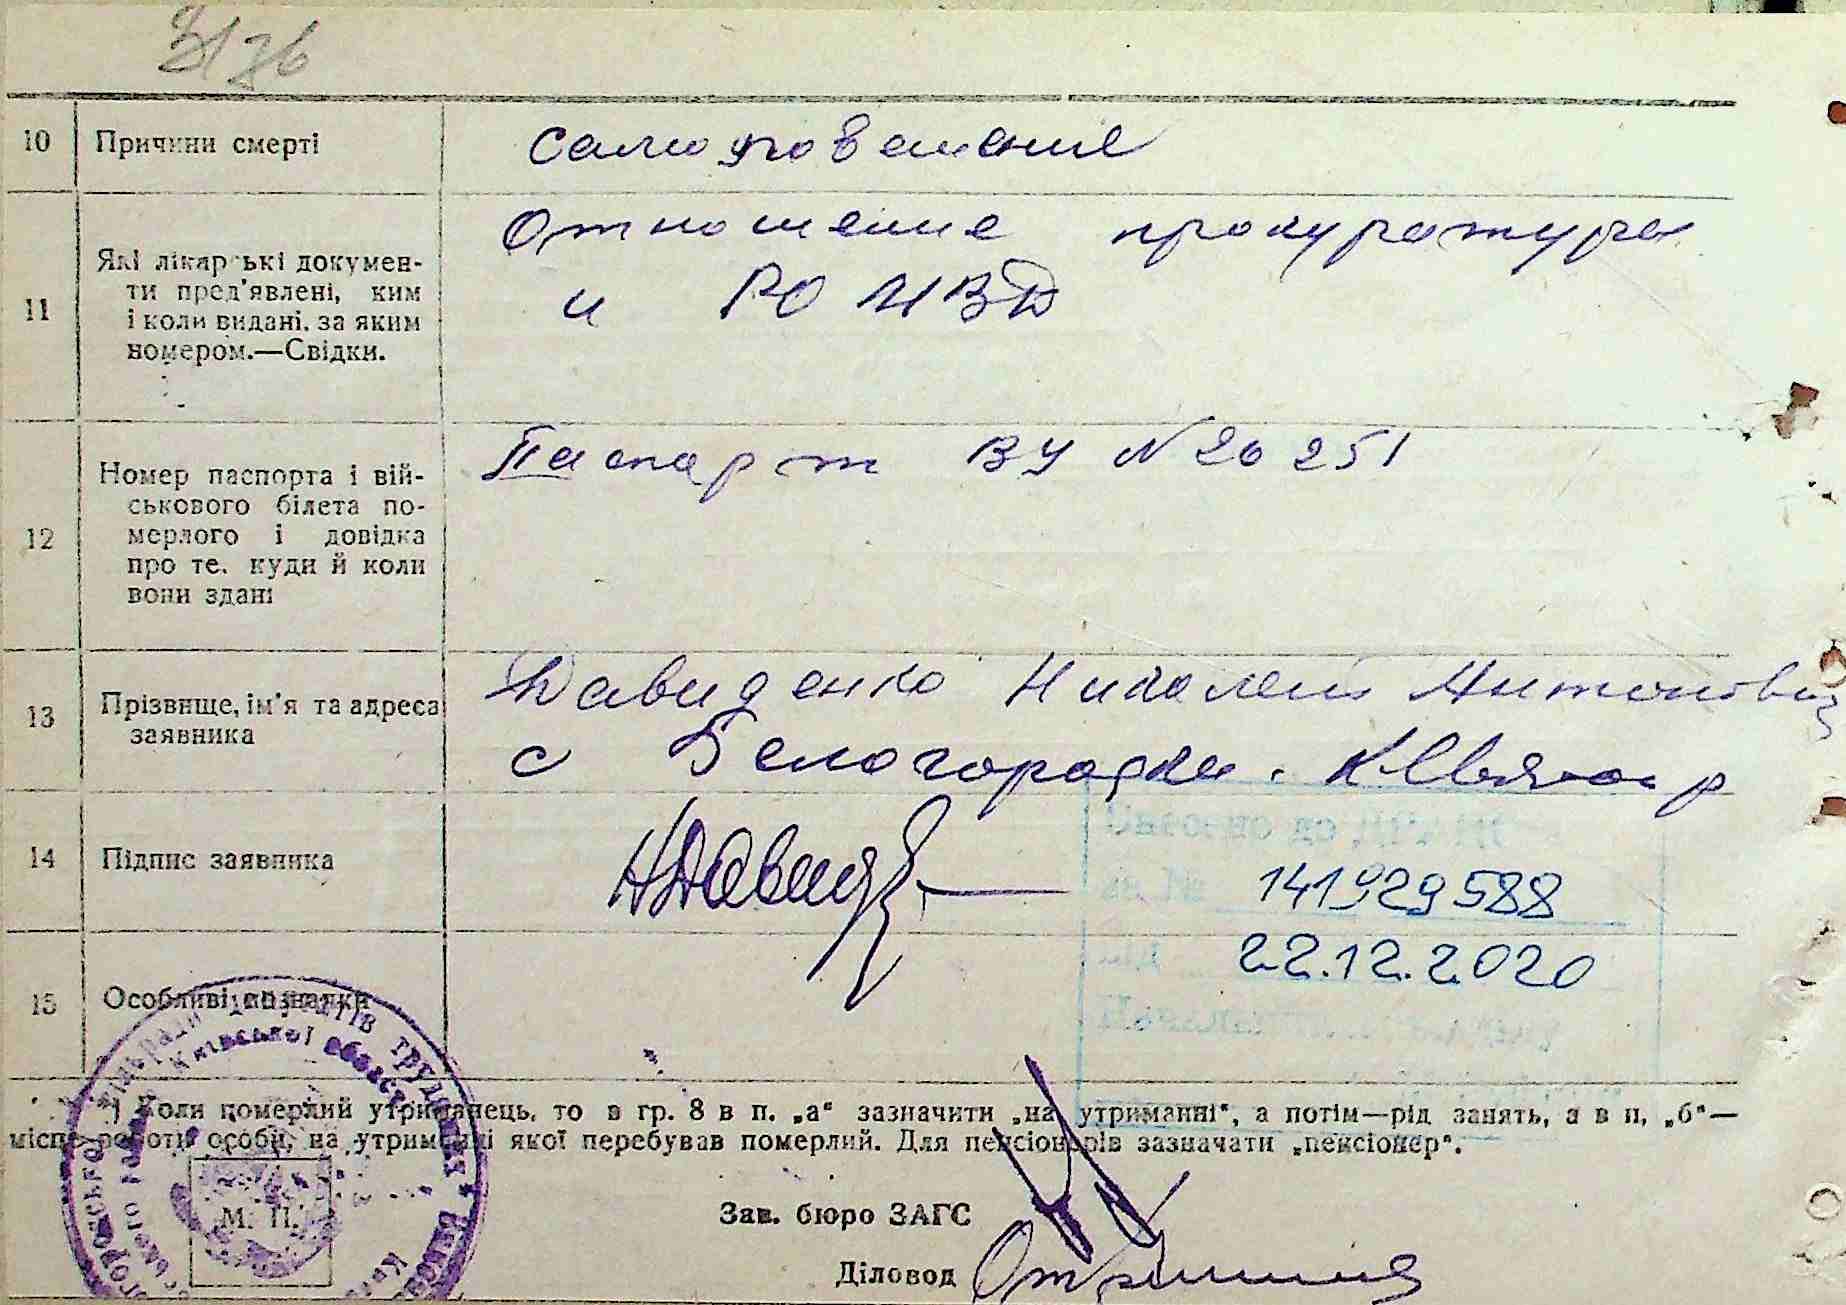 10 Причини смерті самоповешение
11 Які лікарські докумен-
ти пред'явлені, ким
і коли видані, за яким
номером.—Свідки.
Отношение прокуратуры
и РО МВД
12 Номер паспорта і вій-
ськового білета по-
мерлого і довідка
про те, куди й коли
вони здані
Паспорт ВУ N 20251
13 Прізвище, ім'я та адреса
заявника
Давиденко Николай Антонович
с Белогородка. К Святош р
14 Підпис заявника
141929588
22.12.2020
15 Особливі познаки
*) Коли померлий утриманець, то в гр. 8 в п. „а“ зазначити „на утриманні“, а потім—рід занять, а в п. „б“—
місце роботи особи, на утриманні якої перебував померлий. Для пенсіонерів зазначати „пенсіонер“.
М. П.
Зав. бюро ЗАГС
Діловод